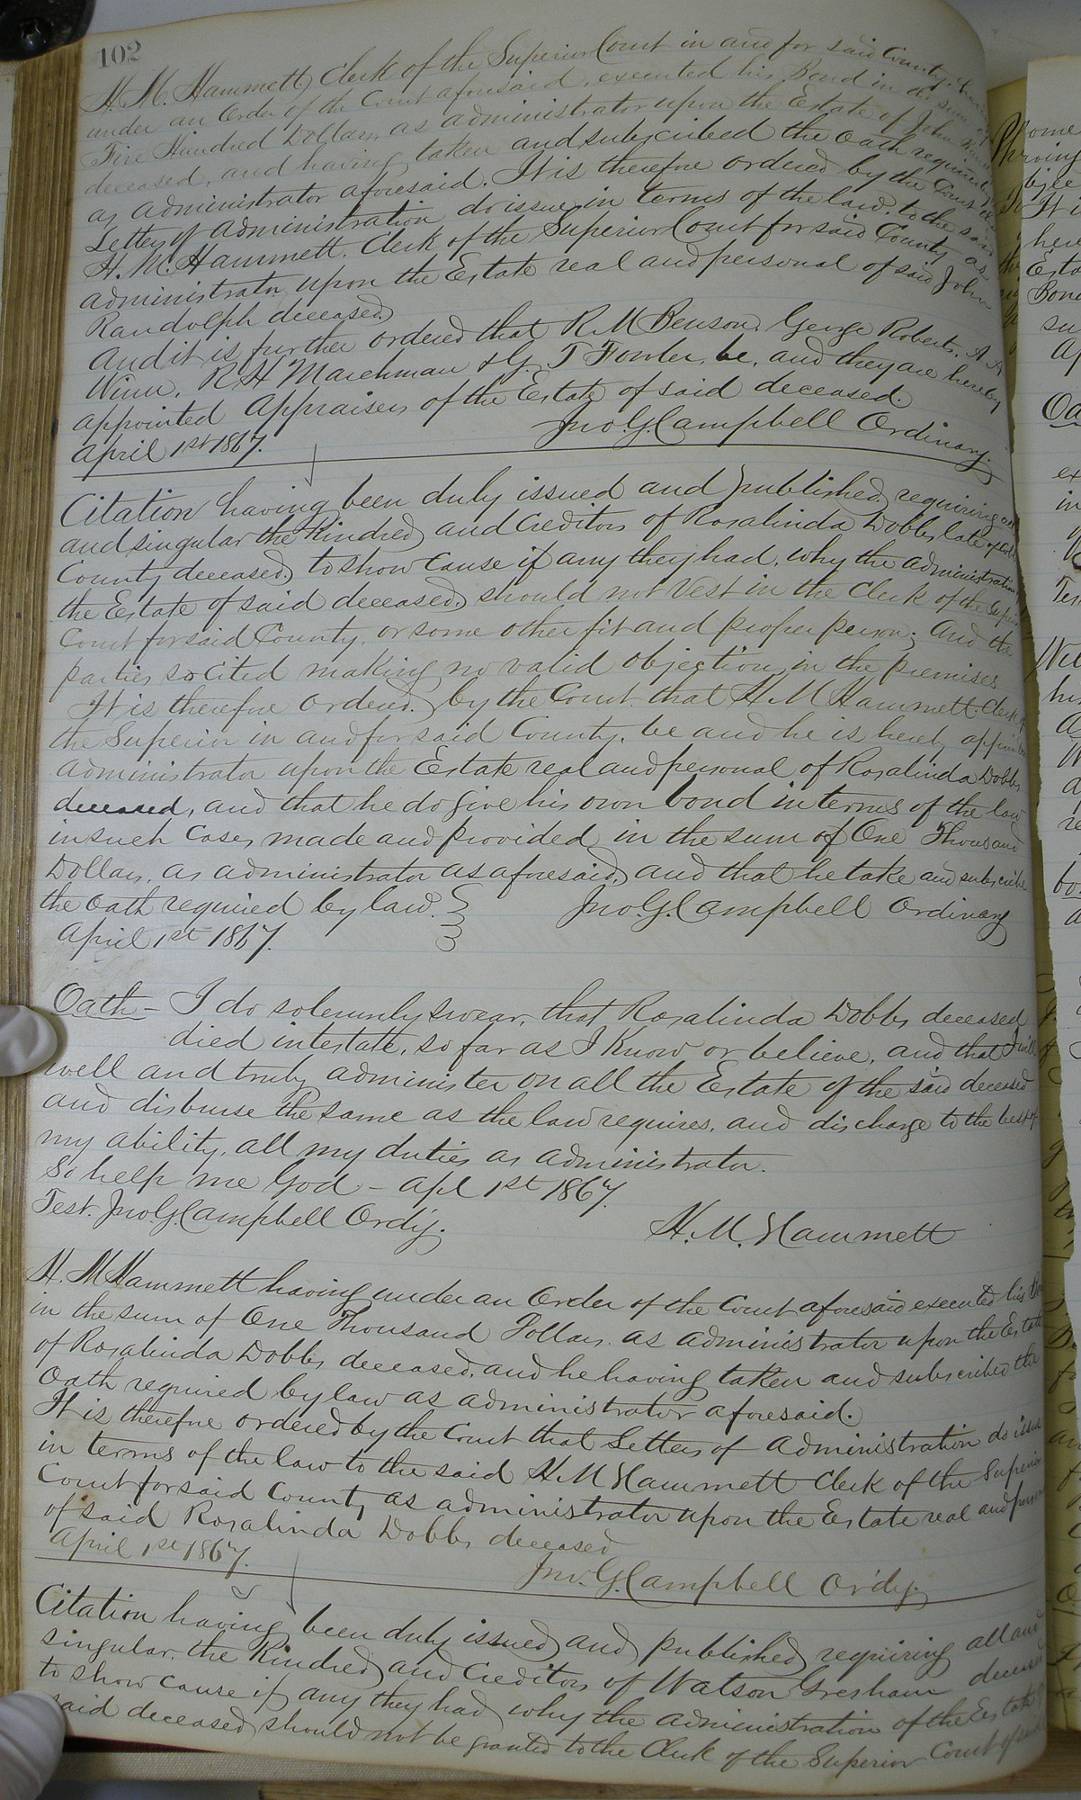 102
H. M. Hammett Clerk of the Superior Court in and for said County
under an Order of the Court aforesaid, executed his Bond in the sum of
Five Hundred Dollars as administrator upon the Estate of John
deceased, and having taken and subscribed the oath required
as administrator aforesaid. It is therefore ordered by the Court
Letters of administration do issue in terms of the law, to the said
H. M. Hammett. Clerk of the Superior Court for said County as
administrator upon the Estate real and personal of said John
Randolph deceased
And it is further ordered that R M Benson George Roberts, A. A
Winn, R H Marchman & G. T Fowler, be, and they are hereby
appointed appraisers of the Estate of said deceased.
April 1st 1867. Jno. G. Campbell Ordinary.
Citation having been duly issued and published, requiring all
and singular the Kindred and Creditors of Rosalinda Dobbs late of said
County deceased, to show cause if any they had, why the administration
the Estate of said deceased, should not Vest in the Clerk of the Superior
Court for said County. or some other fit and proper person; And the
parties so cited making no valid objection in the premises
It is therefore Ordered, by the Court that H M Hammett Clerk
the Superior in and for said County. be and he is hereby appointed
administrator upon the Estate real and personal of Rosalinda Dobbs
deceased, and that he do give his own bond in terms of the law
in such Cases made and provided in the sum of One Thousand
Dollars, as administrator as aforesaid, and that he take and subscribe
the oath required by law. Jno. G. Campbell Ordinary
April 1st 1867.
Oath - I do solemnly swear, that Rosalinda Dobbs deceased
died intestate, so far as I Know or believe, and that I will
well and truly administer on all the Estate of the said deceased
and disburse the same as the law requires, and discharge to the best of
my ability, all my duties as administrator.
So help me God - Apl 1st 1867.
Test. Jno. G. Campbell Ordy. H. M. Hammett
H. M Hammett having under an Order of the Court aforesaid executed his Bond
in the sum of One Thousand Dollars as administrator upon the Estate
of Rosalinda Dobbs deceased, and he having taken and subscribed the
Oath required by law as administrator aforesaid.
It is therefore ordered by the Court that Letters of Administration do issue
in terms of the law to the said H M Hammett Clerk of the Superior
Court for said County as administrator upon the Estate real and personal
of said Rosalinda Dobbs deceased
April 1st 1867. Jno. G. Campbell Ordy.
Citation having been duly issued and published, requiring all and
singular, the Kindred and Creditors of Watson Gresham deceased
to show cause if any they had why the administration of the Estate of
said deceased should not be granted to the Clerk of the Superior Court of said